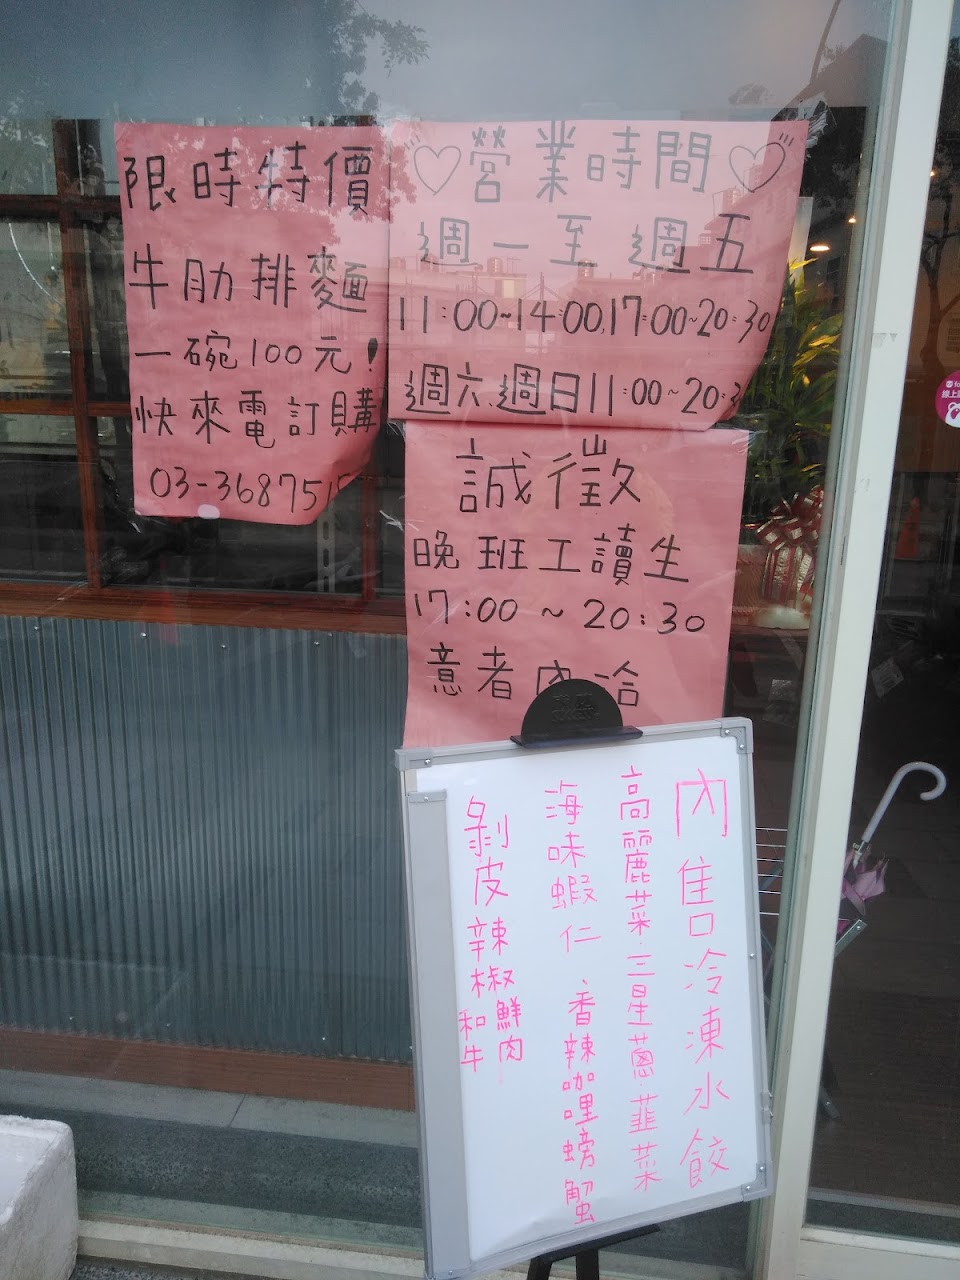 限時特價
牛肋排麵
一碗100元!
快來電訂購
03-36875
♡營業時間♡
週一至週五
11:00~14:00.17:00~20:30
週六.週日11:00~20:3
誠徵
晚班工讀生
17:00~20:30
意者內洽
內售冷凍水餃
高麗菜.三星蔥.韮菜
海味蝦仁、香辣咖哩螃蟹
剝皮辣椒鮮肉
和牛
線上